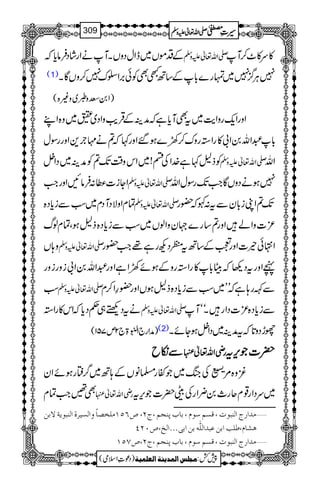 سیرتِ مصطفی صلی اللہ تعالیٰ علیہ وسلم
309
کا سر کاٹ کر آپ صلی اللہ تعالیٰ علیہ وسلم کے قدموں میں ڈال دوں۔ آپ نے ارشاد فرمایا کہ
نہیں ہرگز نہیں میں تمہارے باپ کے ساتھ کبھی بھی کوئی برا سلوک نہیں کروں گا۔(1)
(ابن سعد و طبری وغیرہ)
اور ایک روایت میں یہ بھی آیا ہے کہ مدینہ کے قریب وادی عقیق میں وہ اپنے
باپ عبداللہ بن ابی کا راستہ روک کر کھڑے ہو گئے اور کہا کہ تم نے مہاجرین اور رسول
اللہ صلی اللہ تعالیٰ علیہ وسلم کو ذلیل کہا ہے خدا کی قسم! میں اس وقت تک تم کو مدینہ میں داخل
نہیں ہونے دوں گا جب تک رسول اللہ صلی اللہ تعالیٰ علیہ وسلم اجازت عطا نہ فرمائیں اور جب
تک تم اپنی زبان سے یہ نہ کہو کہ حضور صلی اللہ تعالیٰ علیہ وسلم تمام اولاد آدم میں سب سے زیادہ
عزت والے ہیں اور تم سارے جہان والوں میں سب سے زیادہ ذلیل ہو، تمام لوگ
انتہائی حیرت اور تعجب کے ساتھ یہ منظر دیکھ رہے تھے جب حضور صلی اللہ تعالیٰ علیہ وسلم وہاں
پہنچے اور یہ دیکھا کہ بیٹا باپ کا راستہ روکے ہوئے کھڑا ہے اور عبداللہ بن ابی زور زور
سے کہہ رہا ہے کہ ’’میں سب سے زیادہ ذلیل ہوں اور حضور اکرم صلی اللہ تعالیٰ علیہ وسلم سب
سے زیادہ عزت دار ہیں۔‘‘ آپ صلی اللہ تعالیٰ علیہ وسلم نے یہ دیکھتے ہی حکم دیا کہ اس کا راستہ
چھوڑ دو تاکہ یہ مدینہ میں داخل ہو جائے۔(2) (مدارج النبوۃ ج۲ ص۱۵۷)
حضرت جویریہ رضی اللہ تعالیٰ عنہا سے نکاح
غزوہ مریسیع کی جنگ میں جو کفار مسلمانوں کے ہاتھ میں گرفتار ہوئے ان
میں سردار قوم حارث بن ضرار کی بیٹی حضرت جویریہ رضی اللہ تعالیٰ عنہا بھی تھیں جب تمام
مدارج النبوت ، قسم سوم ، باب پنجم ،ج۲ ، ص۱۵۶ملخصاً والسيرة النبوية لابن
هشام،طلب ابن عبدالله بن ابی...الخ،ص۴۲۰
مدارج النبوت ، قسم سوم ، باب پنجم ،ج۲، ص۱۵۷
پیش کش: مجلس المدینۃ العلمیۃ (دعوتِ اسلامی)